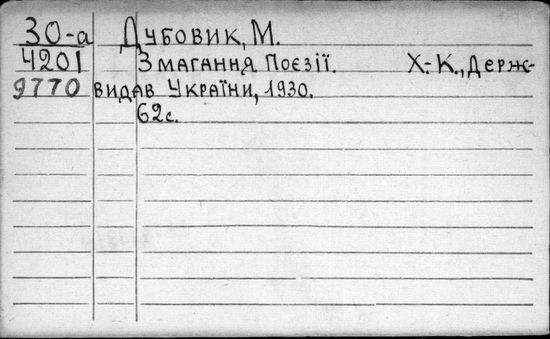 30-а Дубовик, М.
4201 Змагання Поезії. Х.-К., Держ-
9770 видав України, 1930.
62с.